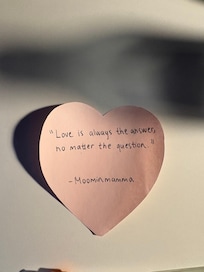 "Love is always the answer,
no matter the question."
- Moominmamma